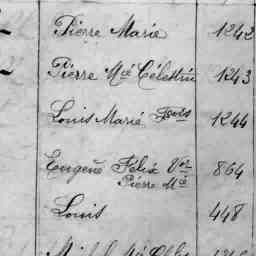 2 Pierre Marie 1242
2 Pierre Mié Célestin 1243
Louis Marie Fçois 1244
Eugène Félix Vor 864
Pierre Mié
Louis 448